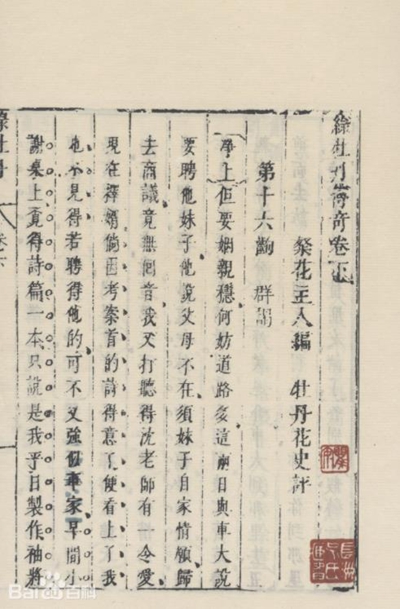 綠牡丹傳奇卷下
粲花主人編 牡丹花史評
第十六齣 群謁
淨上但要姻親穩何妨道路多這兩日與車大說
要聘他妹子他說父母不在須妹子自家情願歸
去商議竟無回音我又打聽得沈老師有一令愛
現在擇婿倘因考案首的詩得意了便看上了我
也不見得若聘得他的可不又強似車家早間小
謝桌上竟得詩篇一本只說是我平日製作袖將
Bai百科